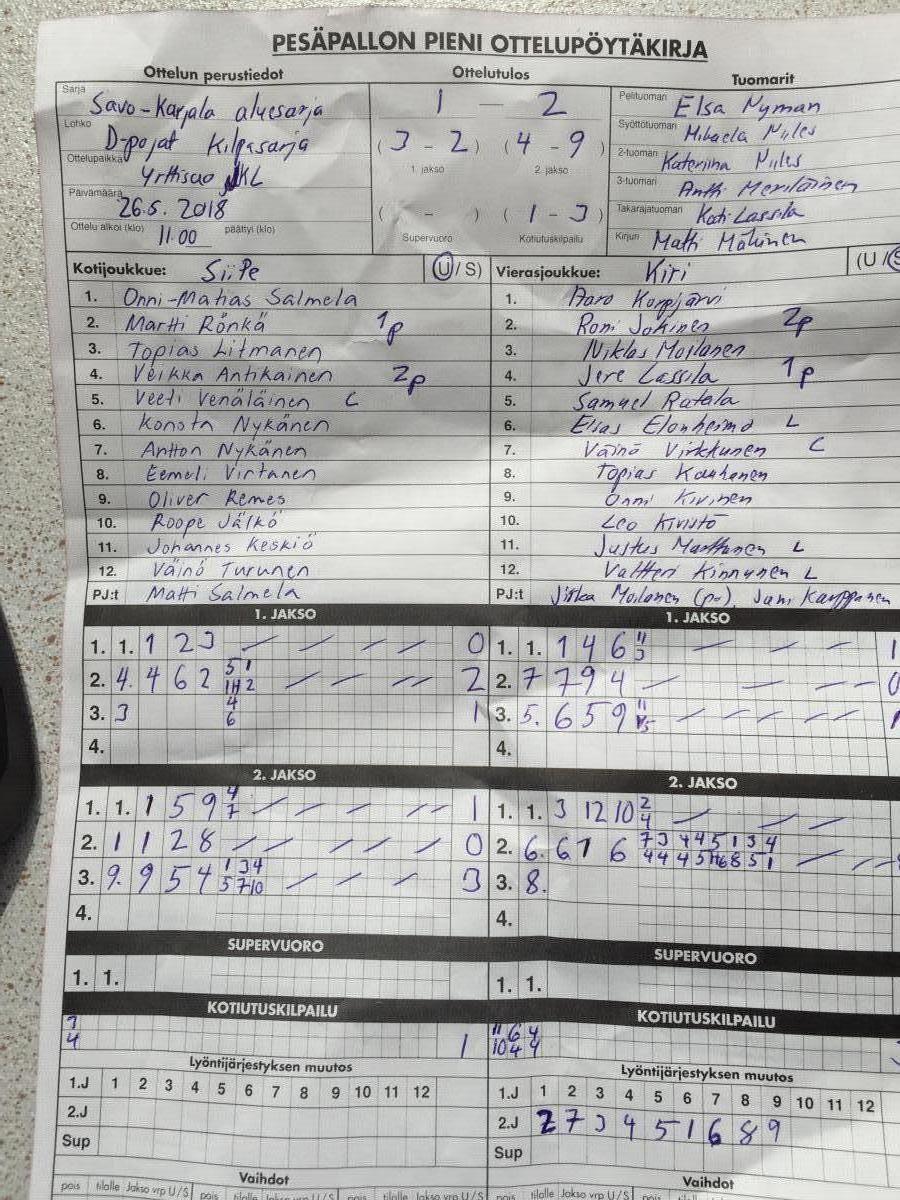 PESÄPALLON PIENI OTTELUPÖYTÄKIRJA
Ottelun perustiedot
Sarja Savo-Karjala aluesarja
Lohko D-pojat Kilpasarja
Ottelupaikka Yrttisuo JKL
Päivämäärä 26.5. 2018
Ottelu alkoi (klo) 11.00 päättyi (klo)
Ottelutulos
1 — 2
( 3 - 2 ) ( 4 - 9 )
1. jakso 2. jakso
( - ) ( 1 - 3 )
Supervuoro Kotiutuskilpailu
Tuomarit
Pelituomari Elsa Nyman
Syöttötuomari Mikaela Niiles
2-tuomari Kateriina Niiles
3-tuomari Antti Meriläinen
Takarajatuomari Kati Lassila
Kirjuri Matti Mäkinen
Kotijoukkue: SiiPe (U / S)
1. Onni-Matias Salmela
2. Martti Rönkä 1p
3. Topias Litmanen
4. Veikka Antikainen 2p
5. Veeti Venäläinen C
6. Konsta Nykänen
7. Anton Nykänen
8. Eemeli Virtanen
9. Oliver Remes
10. Roope Jälkö
11. Johannes Keskiö
12. Väinö Turunen
PJ:t Matti Salmela
Vierasjoukkue: Kiri (U / S
1. Aaro Korpijärvi
2. Roni Jokinen 2p
3. Niklas Moilanen
4. Jere Lassila 1p
5. Samuel Ratala
6. Elias Elonheimo L
7. Väinö Virkkunen C
8. Topias Kauhanen
9. Onni Kivinen
10. Leo Kivistö
11. Justus Marttinen L
12. Valtteri Kinnunen L
PJ:t Jirka Moilanen (pj), Jani Karppanen
1. JAKSO
1. 1. 1 2 3 0
2. 4. 4 6 2 5 1 2
11 12
3. 3 4 1
6
4.
2. JAKSO
1. 1. 1 5 9 4 1
7
2. 1 1 2 8 0
3. 9. 9 5 4 1 3 4 3
5 7 10
4.
SUPERVUORO
1. 1.
KOTIUTUSKILPAILU
7
4 1
Lyöntijärjestyksen muutos
1.J 1 2 3 4 5 6 7 8 9 10 11 12
2.J
Sup
Vaihdot
pois tilalle Jakso vrp U / S pois tilalle Jakso vrp U / S
1. JAKSO
1. 1. 1 4 6 11 1
3
2. 7 7 9 4 0
3. 5. 6 5 9 11
4.
2. JAKSO
1. 1. 3 12 10 2
4
2. 6. 6 1 6 7 3 4 4 5 1 3 4
3. 8.
4.
SUPERVUORO
1. 1.
KOTIUTUSKILPAILU
11 6 4
10 4 4
Lyöntijärjestyksen muutos
1.J 1 2 3 4 5 6 7 8 9 10 11 12
2.J 2 7 3 4 5 1 6 8 9
Sup
Vaihdot
pois tilalle Jakso vrp U / S pois tilalle Jakso vrp U / S